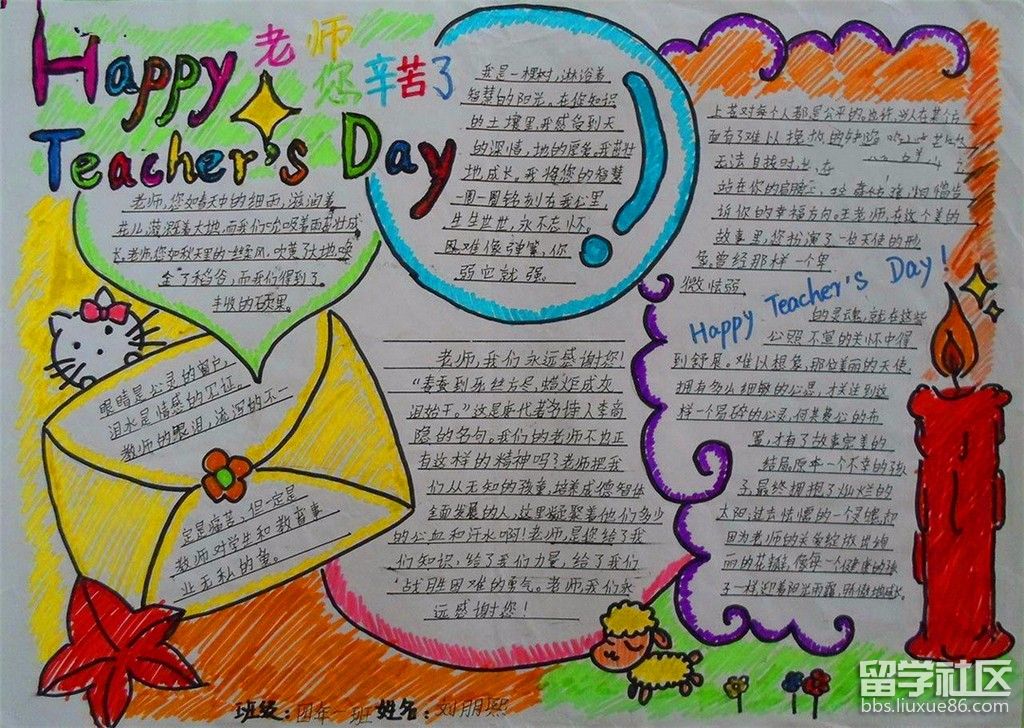 Happy 老师
您辛苦了
Teacher's Day
老师,您如春天中的细雨,滋润着
花儿,滋润着大地,而我们吮吸着而茁壮成
长,老师,您如秋天里的一缕风,吹黄了大地,唤
金了稻谷,而我们得到了
丰收的硕果。
我是一棵树,淋浴着
智慧的阳光,在您知识
的土壤里,我感受到天
的深情,地的厚爱,我茁壮
地成长,我将您的智慧
一圈一圈铭刻在我心里,
生生世世,永不忘怀。
困难像弹簧,你
弱它就强。
上苍对每个人都是公平的。也许,当人在某个方
面有了难以挽救的缺陷
无法自拔时,总在
站在你的肩膀
诉你的幸福方向。王老师,在这个美的
故事里,您扮演了一位天使的形
象。曾经那样一个卑
微怯弱
Happy Teacher's Day!
的灵魂,就在这些
心照不宣的关怀中得
到舒展。难以想象,那位美丽的天使,
拥有多么细腻的心思,才走到这
样一个易碎的心灵,何其费心的布
置,才有了故事完美的
结局,原本一个不幸的孩
子,最终拥抱了灿烂的
太阳;过去怯懦的一个灵魂,却
因为老师的关爱绽放出绚
丽的花瓣,像每一个健康的孩
子一样迎着阳光雨露,骄傲地成长。
眼睛是心灵的窗户,
泪水是情感的见证。
教师的眼泪,流泻的不一
定是痛苦,但一定是
教师对学生和教育事
业无私的爱。
老师,我们永远感谢您!
“春蚕到死丝方尽,蜡炬成灰
泪始干。”这是唐代著名诗人李商
隐的名句。我们的老师不也正
有这样的精神吗?老师把我
们从无知的孩童,培养成德智体
全面发展的人,这里凝聚着他们多少
的心血和汗水啊!老师,是您给了我
们知识,给了我们力量,给了我们
战胜困难的勇气。老师,我们永
远感谢您!
班级:四年一班 姓名:刘朋熙
留学社区
bbs.liuxue86.com